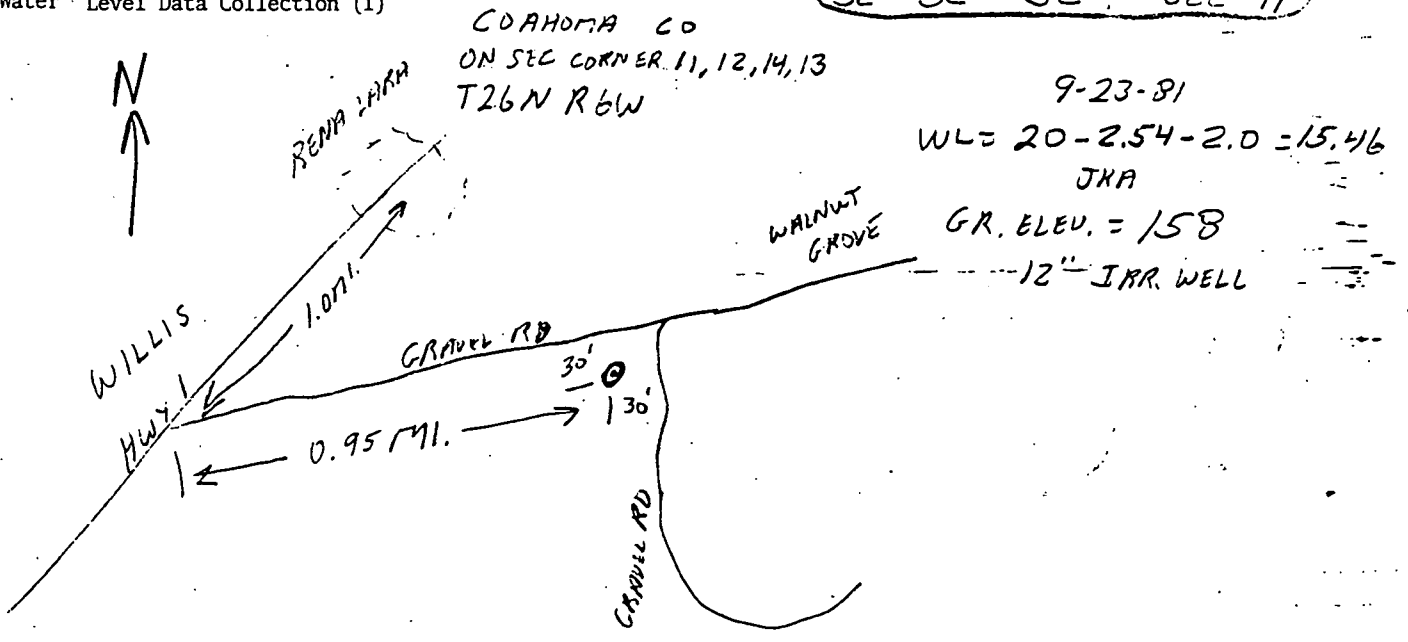 Water Level Data Collection (1)
COAHOMA CO
ON SEC CORNER 11, 12, 14, 13
T26N R6W
N
RENA LARA
9-23-81
WL = 20-2.54-2.0 = 15.46
JKA
GR. ELEV. = 158
12" IRR. WELL
WALNUT
GROVE
1.0 MI.
WILLIS
HWY 1
GRAVEL RD
30'
30'
0.95 MI.
GRAVEL RD